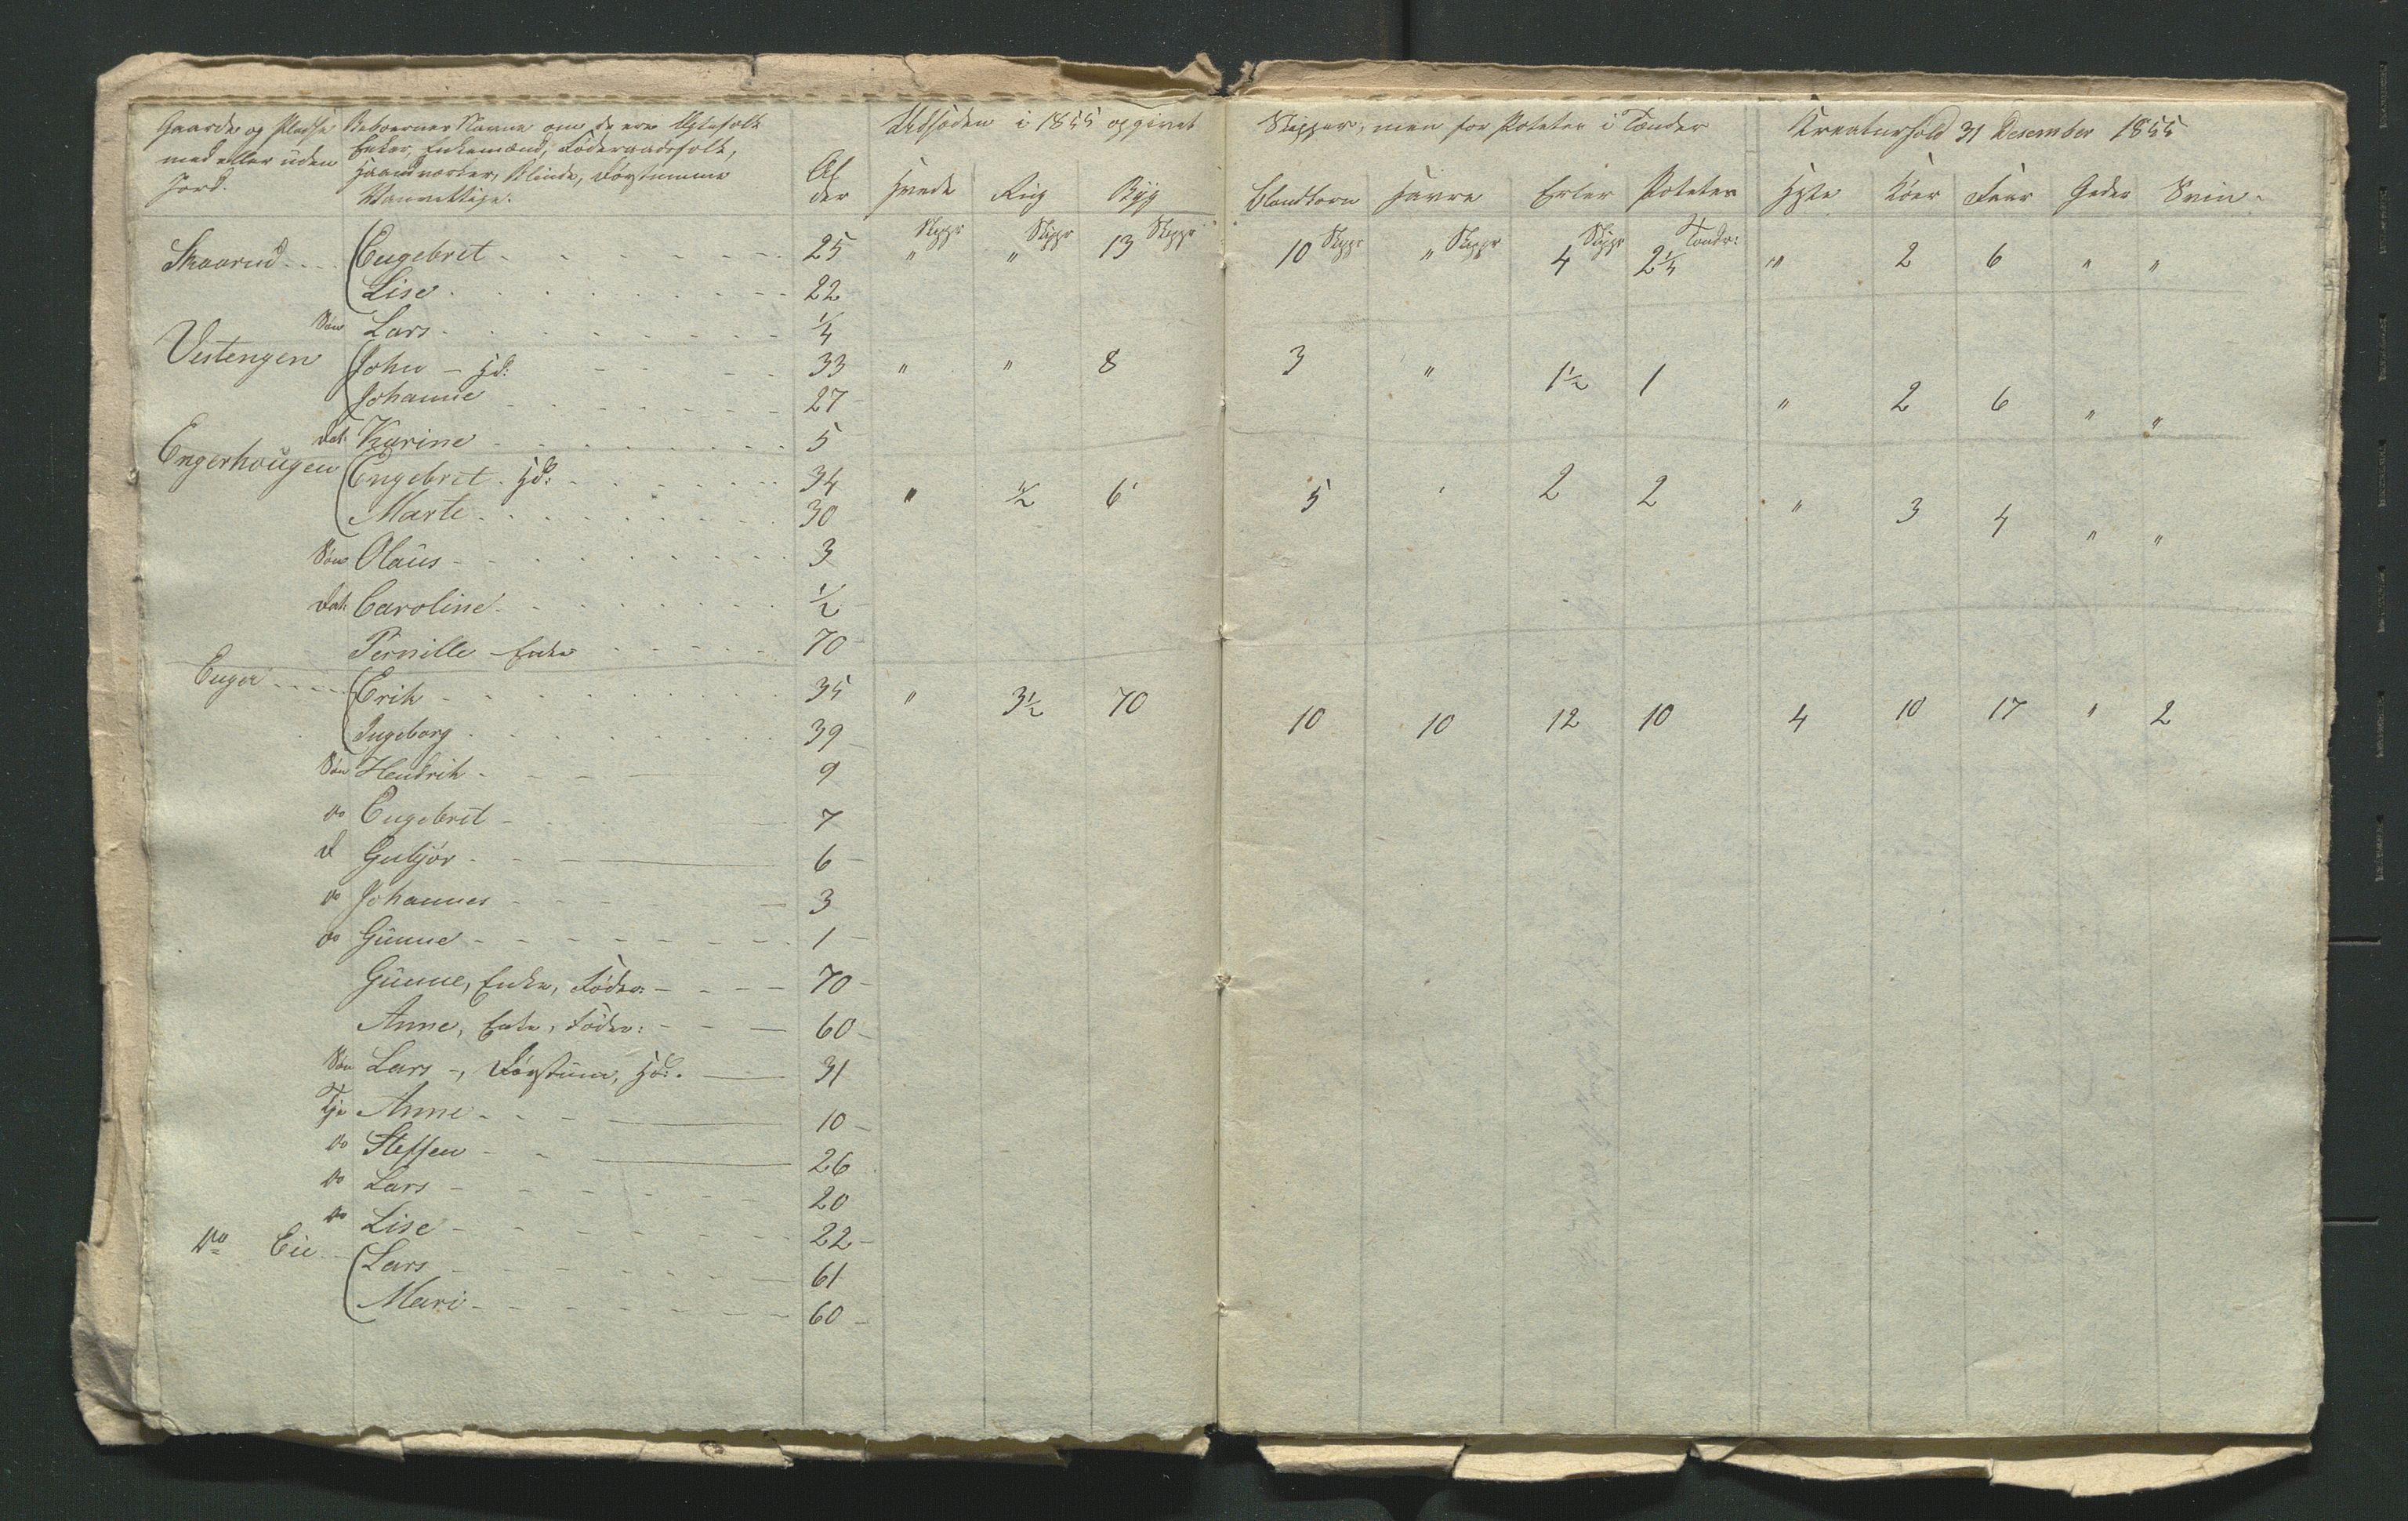 Gaarde og Pladse
med eller uden
Jord.
Beboernes Navne om de ere Egtefolk
Enker, Enkemænd, Föderaadsfolk,
Haandverker, Blinde, Døvstumme
Vanvittige.
Al
der
Udsöden i 1855 opgivet
Hvede Rug Byg
Skjepper, men for Poteter i Tønder
Blandkorn Havre Erter Poteter
Kreaturhold 31 Desember 1855
Heste Köer Faar Geder Svin
Skaarud Engebret 25 " Skjpr " Skjpr 13 Skjpr 10 Skjpr " Skjpr 4 Skjpr 2¼ Tøndr: " 2 6 " "
Lise 22
Søn Lars ¼
Vestengen John - Hd: 33 " " 8 3 " 1½ 1 " 2 6 " "
Johanne 27
Dat: Karine 5
Engerhougen Engebret. Hd: 34 " ½ 6 5 " 2 2 " 3 4 " "
Marte 30
Søn Olaus 3
Dat: Caroline ½
Pernille - Enke 70
Enger Erik 35 " 3½ 70 10 10 12 10 4 10 17 " 2
Ingeborg 39
Søn Hendrik 9
do Engebret 7
D Gubjör 6
do Johannes 3
do Gunne 1
Gunne, Enke, Föder: 70
Anne, Enke, Föder: 60
Søn Lars -, Døvstum, Hd: 31
Tje Anne 10
do Steffen 26
do Lars 20
do Lise 22
do Eie Lars 61
Mari 60